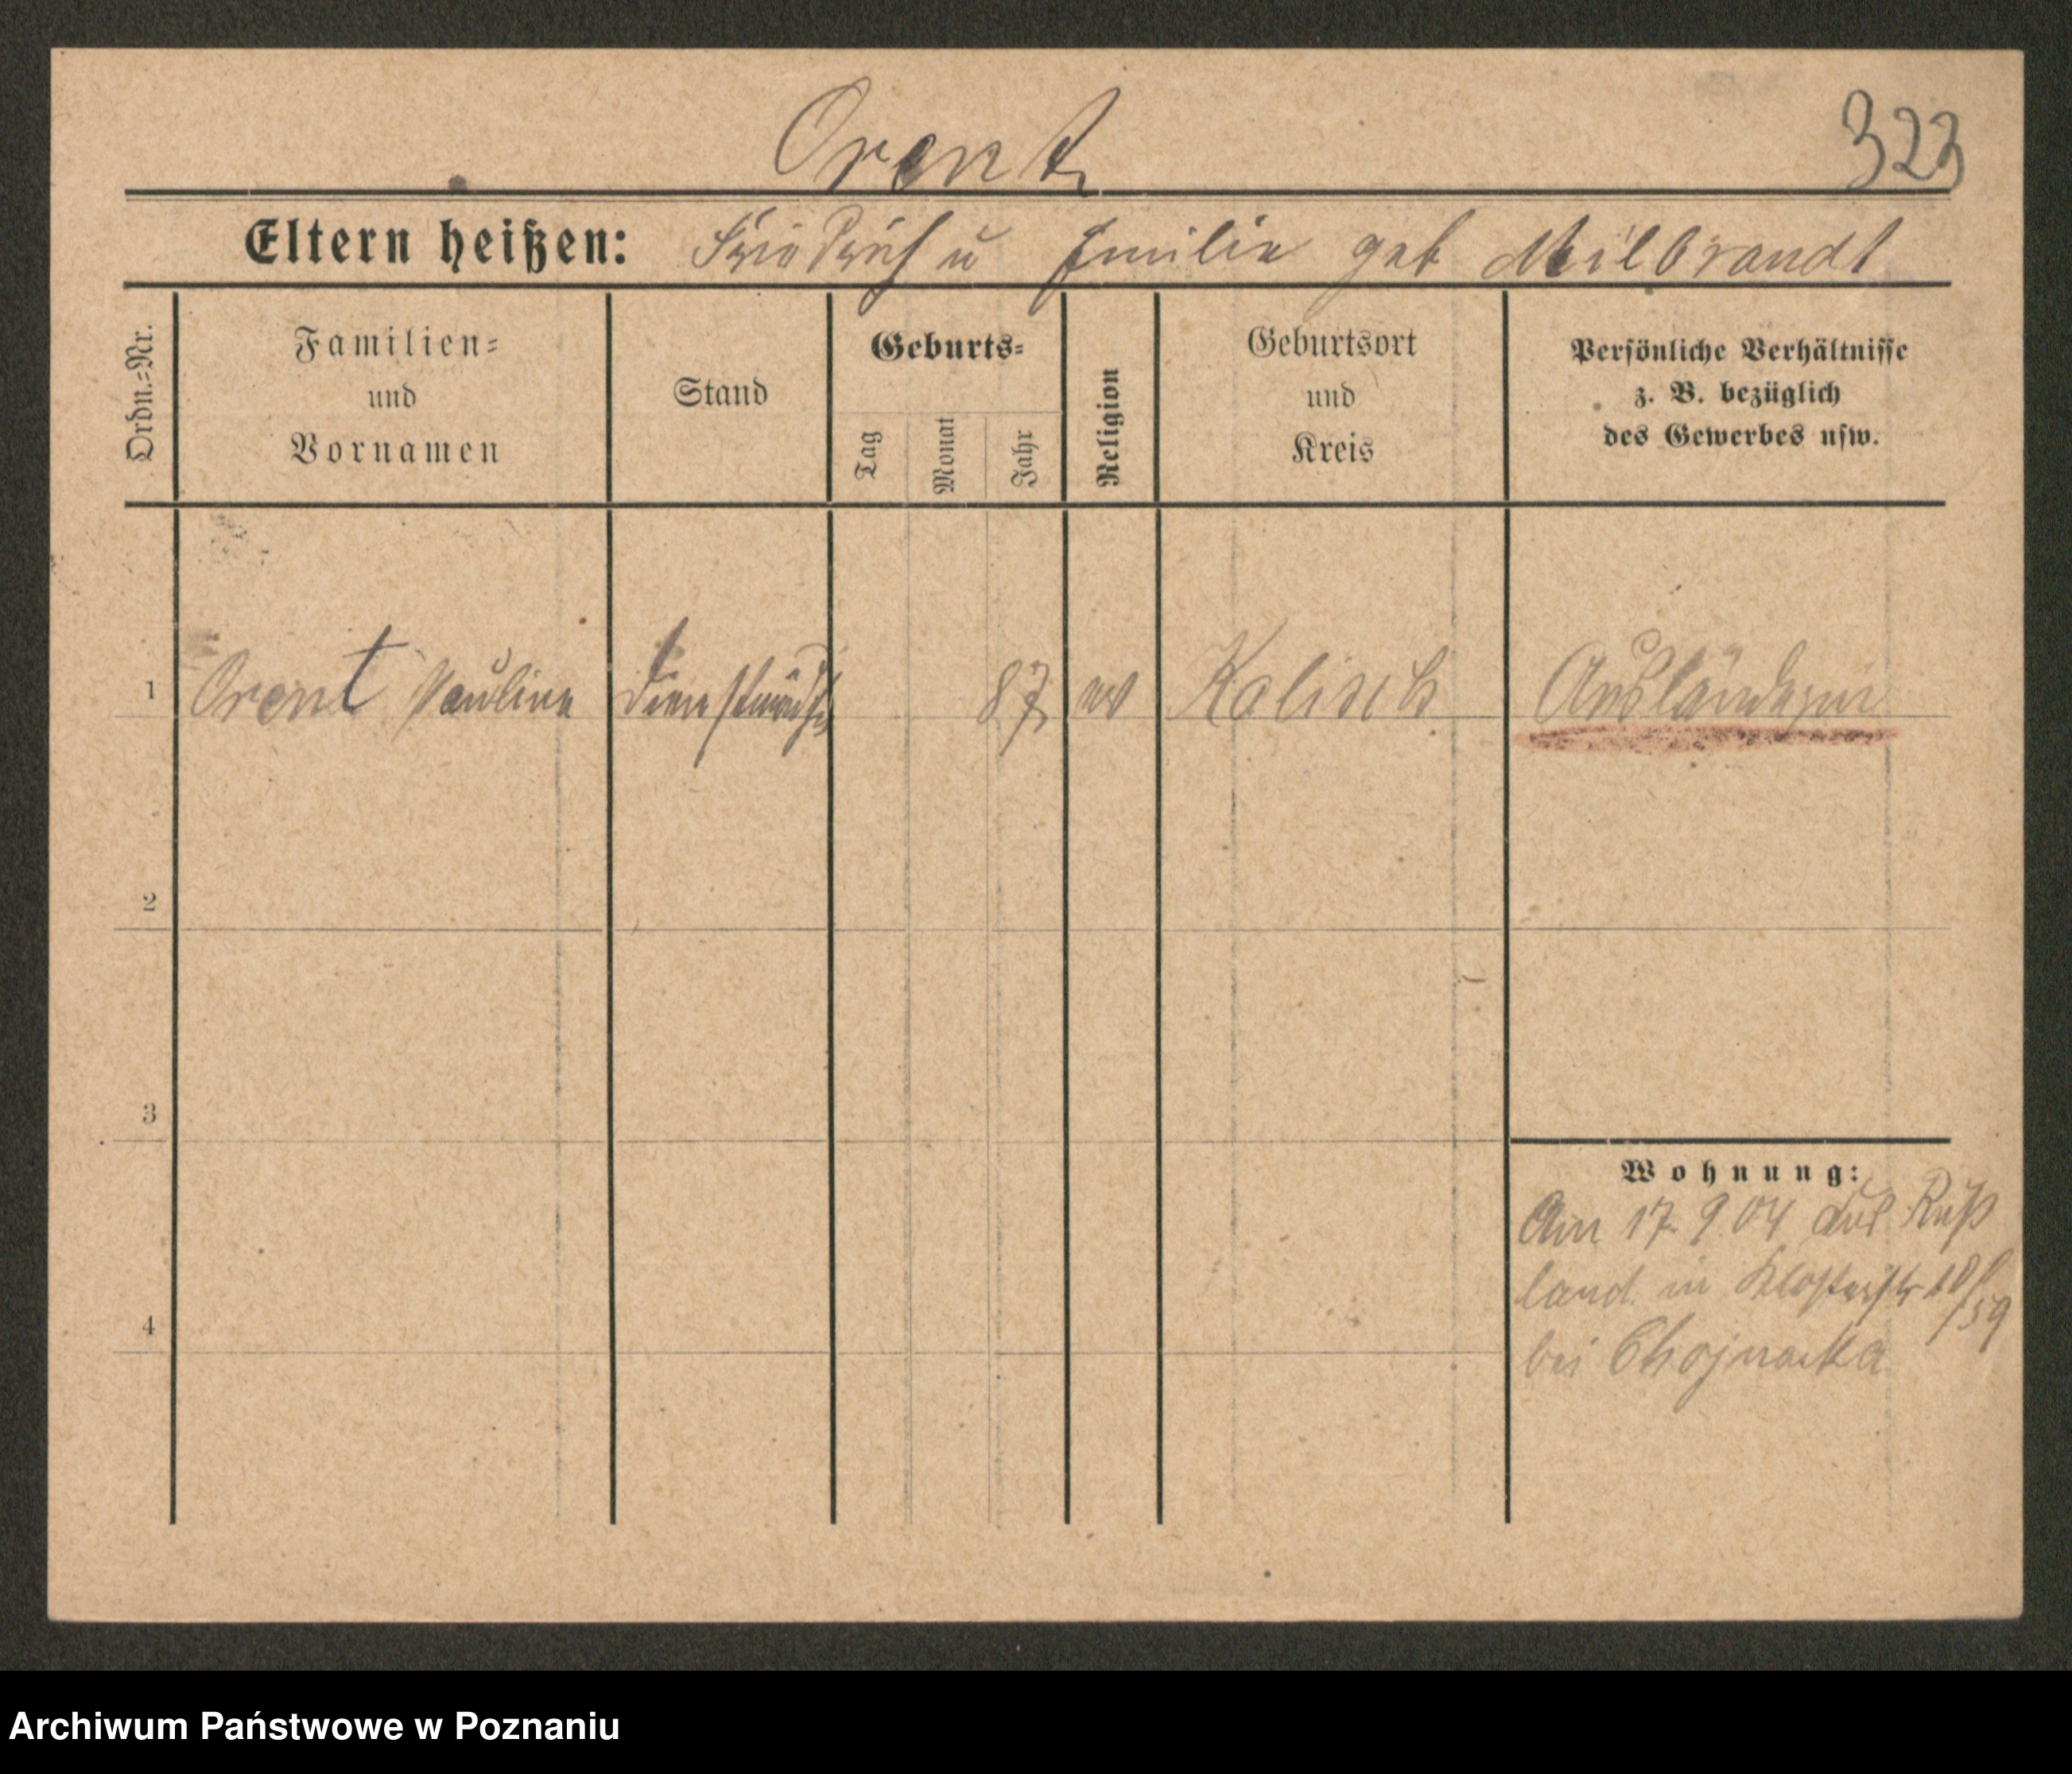 Orent
323
Eltern heißen: Friedrich u Emilie geb Milbrandt
Ordn.=Nr.
Familien=
und
Vornamen
Stand
Geburts=
Tag
Monat
Jahr
Religion
Geburtsort
und
Kreis
Persönliche Verhältnisse
z. B. bezüglich
des Gewerbes usw.
1 Orent Pauline 87 ev Kalisch Ausländerin
2
3
4
Wohnung:
Am 17. 9 04 aus Ruß
land in Klosterstr
bei Chojnacka
Archiwum Państwowe w Poznaniu